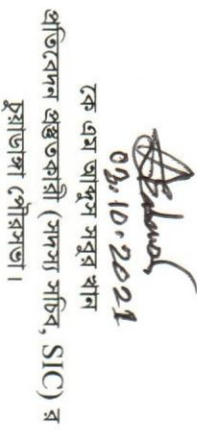 03.10.2021
কে এম আব্দুস সবুর খান
প্রতিবেদন প্রস্তুতকারী (সদস্য সচিব, SIC) র
চুয়াডাঙ্গা পৌরসভা।